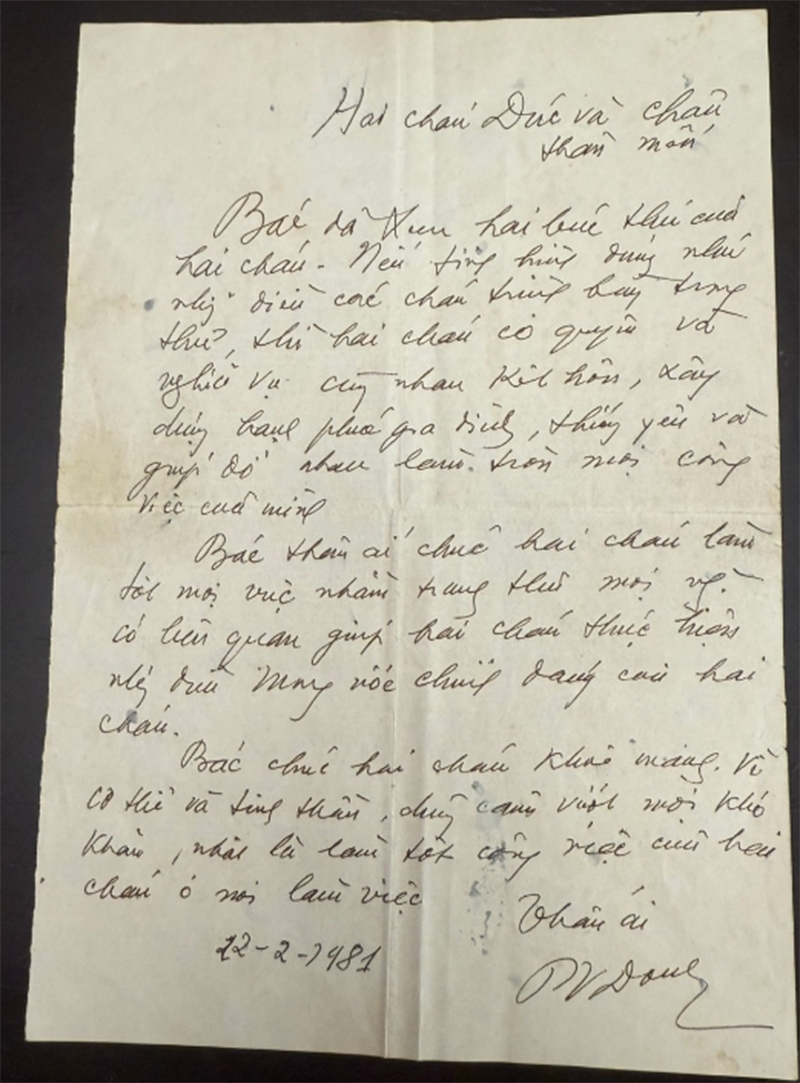 Hai cháu Đức và Chấn
thân mến
Bác đã xem hai bức thư của
hai cháu. Nếu tình hình đúng như
nhg điều các cháu trình bày trong
thư, thì hai cháu có quyền và
nghĩa vụ cùng nhau kết hôn, xây
dựng hạnh phúc gia đình, thương yêu và
giúp đỡ nhau làm tròn mọi công
việc của mình
Bác thân ái chúc hai cháu làm
tốt mọi việc nhằm tranh thủ mọi ng.
có liên quan giúp hai cháu thực hiện
nhg điều mong ước chính đáng của hai
cháu.
Bác chúc hai cháu khoẻ mạnh. Về
cơ thể và tinh thần, dũng cảm vượt mọi khó
khăn, nhất là làm tốt công việc của hai
cháu ở nơi làm việc
Thân ái
22-2-1981
PVDong